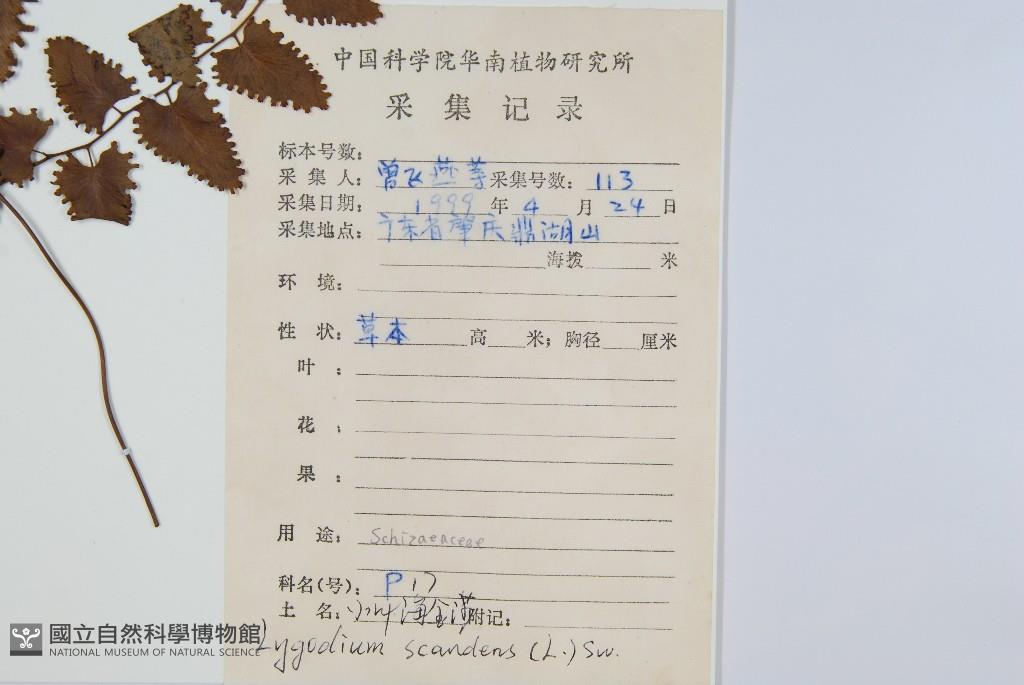 中国科学院华南植物研究所
采集记录
标本号数：
采集人：曾飞燕等 采集号数：113
采集日期：1999年4月24日
采集地点：广东省肇庆鼎湖山
海拨 米
环境：
性状：草本 高 米；胸径 厘米
叶：
花：
果：
用途：Schizaeaceae
科名(号)：P17
土名：小叶海金沙 附记：
Lygodium scandens (L.) Sw.
國立自然科學博物館
NATIONAL MUSEUM OF NATURAL SCIENCE